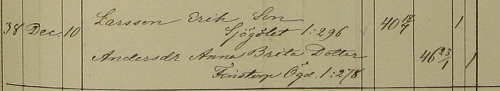 38 Dec. 10 Larsson Erik Son 40 10/7 1
Sjögölet 1:296
Andersdr Anna Brita Dotter 46 23/1 1
Fönstorp Ögd. 1:278